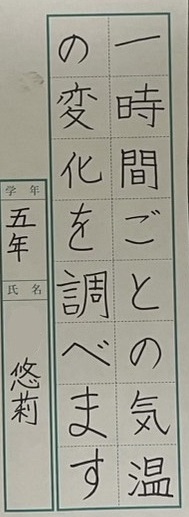 一時間ごとの気温
の変化を調べます
学年
五年
氏名
悠莉